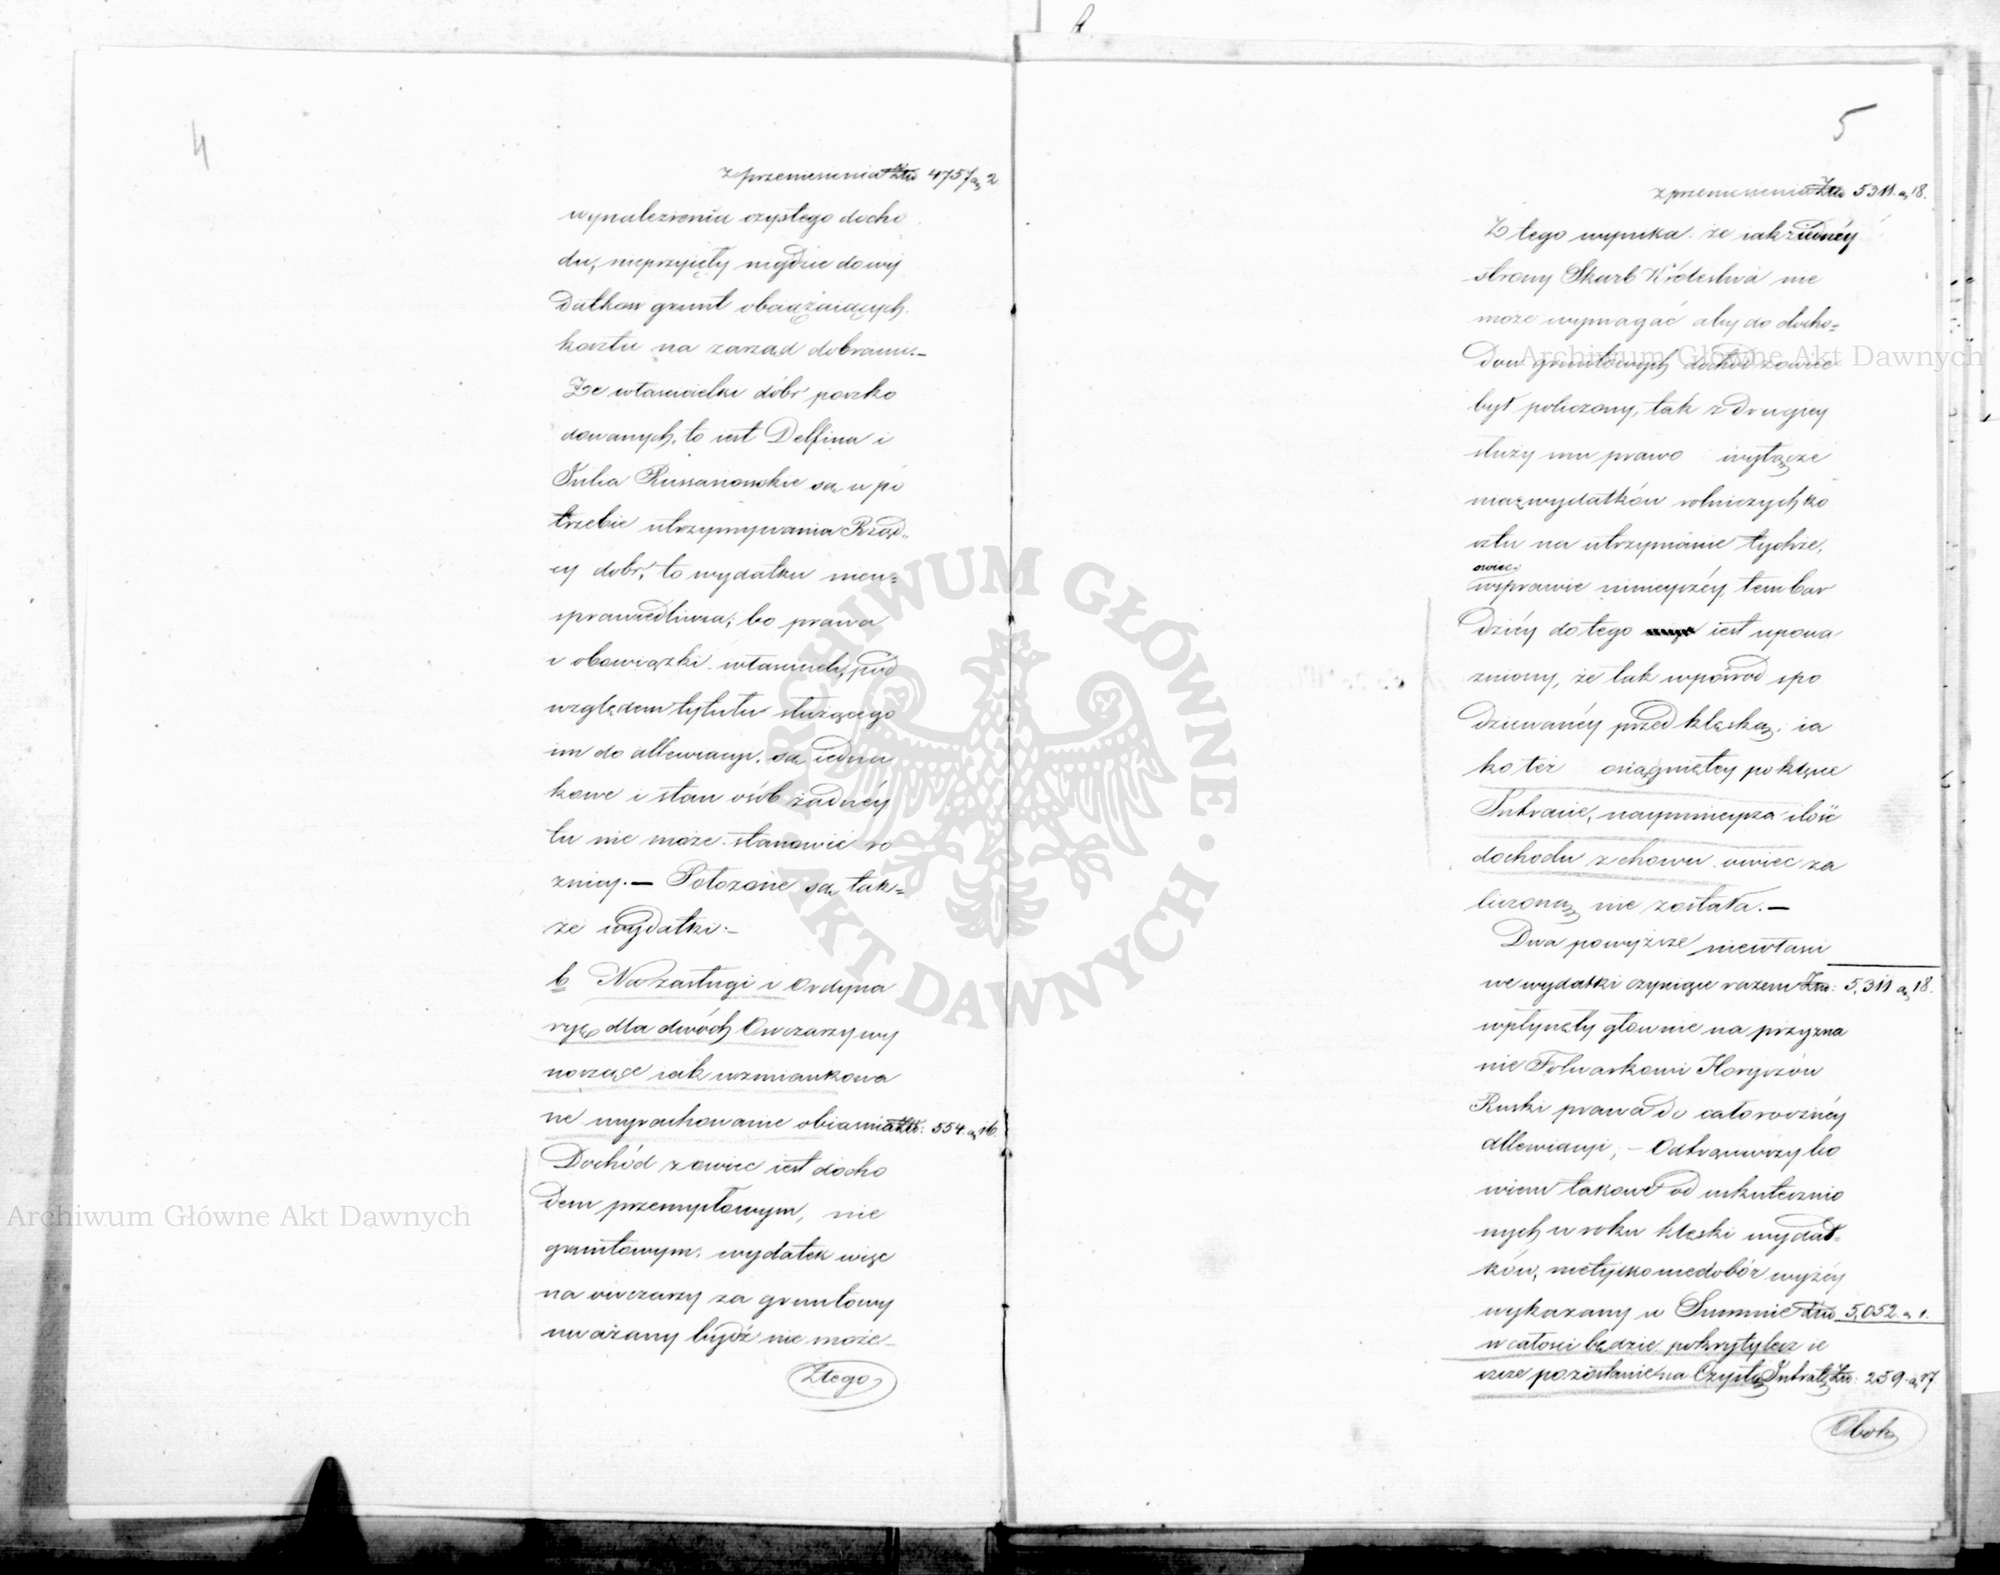 4
z przeniesienia Złtu 4757 g 2
wynalezieniu czystego docho
du, nieprzyięły nigdzie do wy
datkow grunt obciążaiących
kosztu na zarząd dobrami.—
Że właścicielki dóbr poszko
dowanych, to iest Delfina i
Julia Russanowskie są w po
trzebie utrzymywania Rząd„
cy dobr, to wydatku nieu=
sprawiedliwia; bo prawa
i obowiązki właścicieli, pod
względem tytułu służącego
im do allewiacyi, są iedna
kowe i stan osób żadnéy
tu nie może stanowić ró
żnicy.— Położone są tak=
że wydatki:—
b Na zasługi i Ordyna
ryę dla dwóch Owczarzy wy
noszące iak wzmiankowa
ne wyrachowanie obiaśnia Złtu: 554. g 16.
Dochód z owiec iest docho
dem przemysłowym, nie
gruntowym, wydatek więc
na owczarzy za gruntowy
uważany bydź nie może—
Ztego
5
z przeniesienia Złtu 5311 g 18.
Z tego wynika że iak z iednéy
strony Skarb Królestwa nie
może wymagać aby do docho=
dow gruntowych dochód z owiec
był policzony, tak z drugiey
służy mu prawo wyłącze
nia z wydatków rolniczych ko
sztu na utrzymanie tychże,
owiec:
w sprawie ninieyszéy tem bar
dziéy do tego iest upowa
żniony, że tak wpośrod spo
dziewanéy przed klęską, ia
ko też osiągniętey po klęsce
Intracie, naymnieysza ilość
dochodu z chowu owiec za
liczoną nie została.—
Dwa powyższe niewłaści
we wydatki czyniące razem Złtu: 5,311 g 18.
wpłynęły głownie na przyzna
nie Folwarkowi Horyszów
Ruski prawa do całorocznéy
allewiacyi, — Odtrąciwszy bo
wiem takowe od uskutecznio
nych w roku klęski wydat=
ków, nietylko niedobór wyżéy
wykazany w Summie Złtu 5,052 g 1.
w całości będzie pokryty lecz ie
szcze pozostanie na Czystą Intratę Złtu: 259 g 17
Obok
Archiwum Główne Akt Dawnych
Archiwum Główne Akt Dawnych
ARCHIWUM GŁÓWNE · AKT DAWNYCH ·